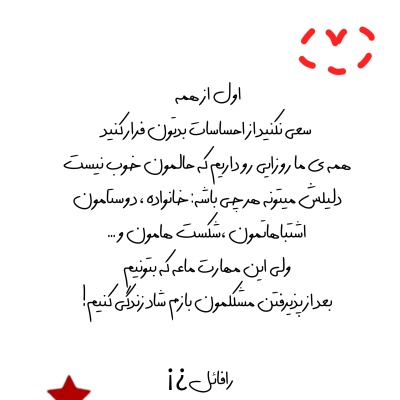 اول از همه
سعی نکنید از احساسات بدتون فرار کنید
همه ی ما روزایی رو داریم که حالمون خوب نیست
دلیلش میتونه هرچی باشه: خانواده ، دوستامون
اشتباهاتمون ،شکست هامون و ...
ولی این مهارت ماعه که بتونیم
بعد از پذیرفتن مشکلمون بازم شاد زندگی کنیم!
رافائل ؟¡